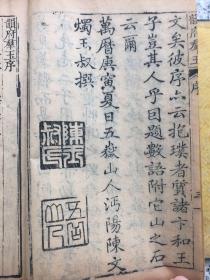 文矣彼序六云抱璞者質諸卞和王
子豈其人乎因題數語附它山之石
云爾
萬曆庚寅夏日五嶽山人沔陽陳文
燭玉叔撰
韻府羣玉序